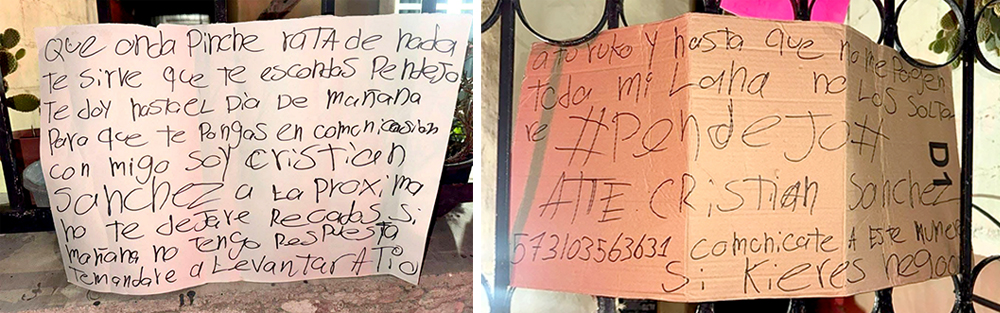 Que onda Pinche rata de nada
te sirve que te escondas Pendejo
Te doy hasta el Dia De mañana
Para que te Pongas en comunicasion
con migo Soy Cristian
Sanchez a La Proxima
no te dejare Recados Si
mañana no Tengo Respuesta
Temandare a Levantar ATIO
y hasta que no me Pagen
toda mi Lana no Los Solta
re #PendeJo#
ATTE. CRistian Sanchez
573103563631 comonicate A Este Numero
Si Kieres negoc
D1